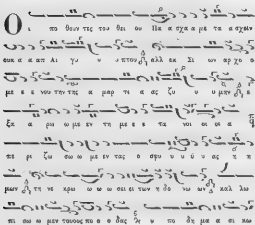 Οι ποθουντες του θει ου Πα α σχα α με τα α σχειν
ουκ α α απ Αι γυ υ υ πτου αλλ εκ Σι ων αρχ ο ο
με ε ε νου την της α μαρ τι ας ζυ υ υ μην
ε ξα α ρω ω με εν τη με ε ε τα νοι οι οι α
πε ρι ζω σω ω με εν τας ο σφυ υ υ υ ας η η
μων τη νε κρω ω ω ω σει ει των η δο νω ων καλ λω
πι σω ω μεν τους πο ο ο δας υ υ πο δη μα α σι κω